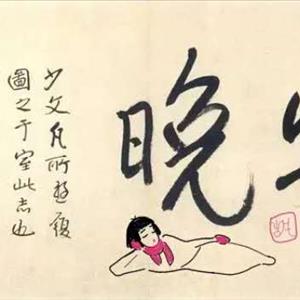 晚
少文凡所遊履
圖之于室此志也